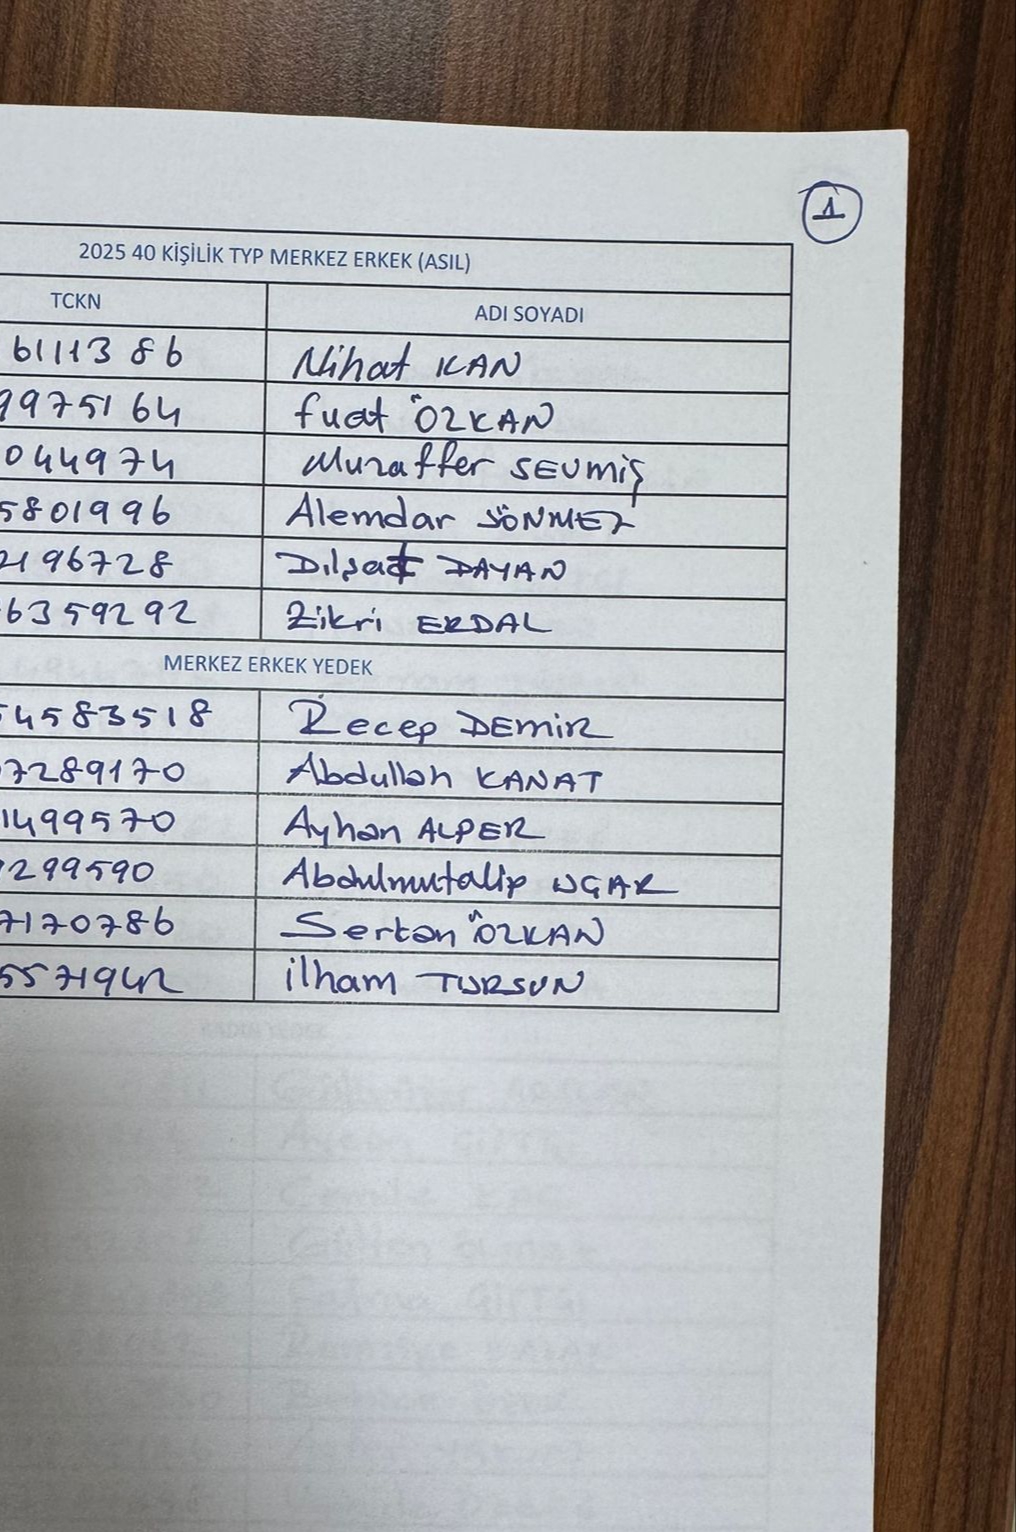 1
2025 40 KİŞİLİK TYP MERKEZ ERKEK (ASIL)
TCKN ADI SOYADI
6111386 Nihat KAN
9975164 fuat ÖZKAN
044974 Muzaffer SEVMİŞ
5801996 Alemdar SÖNMEZ
2196728 Dilşat DAYAN
6359292 Zikri ERDAL
MERKEZ ERKEK YEDEK
54583518 Recep DEMİR
7289170 Abdullah KANAT
1499570 Ayhan ALPER
299590 Abdulmutalip UÇAR
7170786 Sertan ÖZKAN
5571942 ilham TURSUN